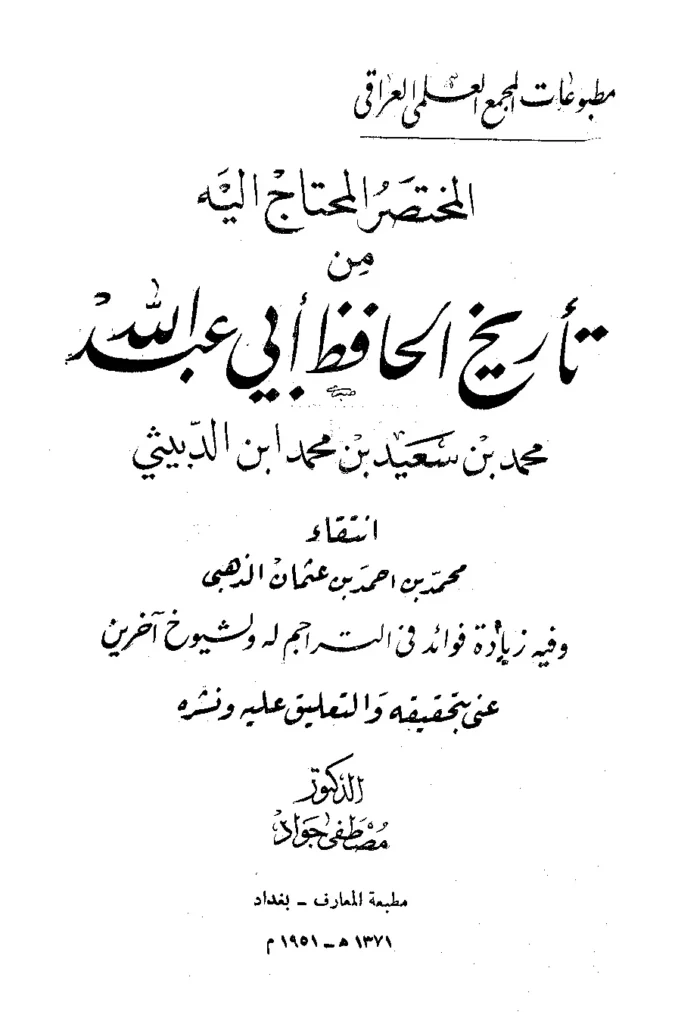 مطبوعات المجمع العلمي العراقي
المختصر المحتاج اليه
من
تأريخ الحافظ أبي عبد الله
محمد بن سعيد بن محمد ابن الدبيثي
انتقاء
محمد بن احمد بن عثمان الذهبي
وفيه زيادة فوائد في التراجم له ولشيوخ آخرين
عني بتحقيقه والتعليق عليه ونشره
الدكتور
مصطفى جواد
مطبعة المعارف – بغداد
١٣٧١ هـ – ١٩٥١ م